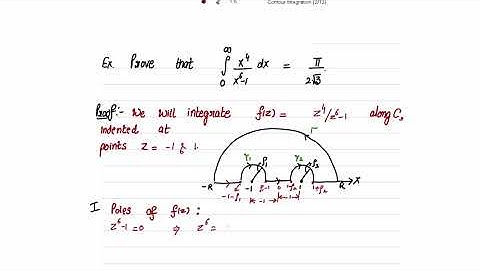 Contour Integration (2/12)
Ex. Prove that ∫₀^∞ x⁴/(x⁶-1) dx = π/(2√3).
Proof:- We will integrate f(z) = z⁴/z⁶-1 along C,
indented at
points z = -1 & 1.
Γ
γ₁ ρ₁ γ₂ ρ₂
-R -1 0 1 R X
-1-ρ₁ 1+ρ₂
I Poles of f(z) :
z⁶-1=0 ⇒ z⁶ =